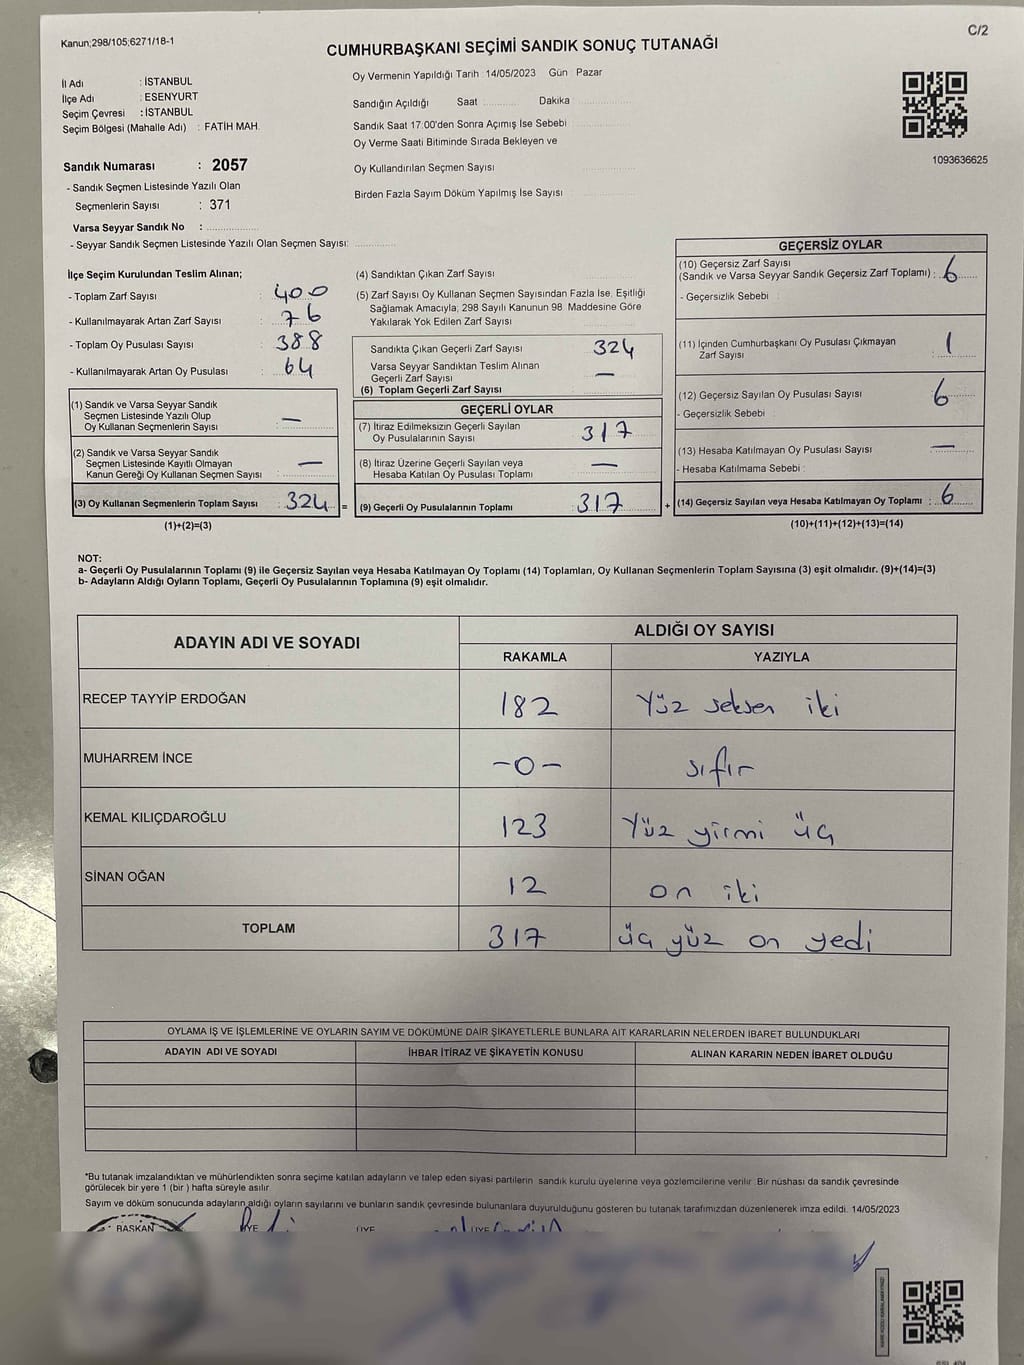 Kanun;298/105;6271/18-1
C/2
CUMHURBAŞKANI SEÇİMİ SANDIK SONUÇ TUTANAĞI
İl Adı : İSTANBUL
İlçe Adı : ESENYURT
Seçim Çevresi : İSTANBUL
Seçim Bölgesi (Mahalle Adı) : FATİH MAH.
Sandık Numarası : 2057
- Sandık Seçmen Listesinde Yazılı Olan
Seçmenlerin Sayısı : 371
Varsa Seyyar Sandık No :
- Seyyar Sandık Seçmen Listesinde Yazılı Olan Seçmen Sayısı:
Oy Vermenin Yapıldığı Tarih : 14/05/2023 Gün Pazar
Sandığın Açıldığı Saat Dakika
Sandık Saat 17:00'den Sonra Açımış İse Sebebi
Oy Verme Saati Bitiminde Sırada Bekleyen ve
Oy Kullandırılan Seçmen Sayısı
Birden Fazla Sayım Döküm Yapılmış İse Sayısı
1093636625
İlçe Seçim Kurulundan Teslim Alınan;
- Toplam Zarf Sayısı : 400
- Kullanılmayarak Artan Zarf Sayısı : 76
- Toplam Oy Pusulası Sayısı : 388
- Kullanılmayarak Artan Oy Pusulası : 64
(1) Sandık ve Varsa Seyyar Sandık
Seçmen Listesinde Yazılı Olup
Oy Kullanan Seçmenlerin Sayısı : —
(2) Sandık ve Varsa Seyyar Sandık
Seçmen Listesinde Kayıtlı Olmayan
Kanun Gereği Oy Kullanan Seçmen Sayısı : —
(3) Oy Kullanan Seçmenlerin Toplam Sayısı : 324 =
(1)+(2)=(3)
(4) Sandıktan Çıkan Zarf Sayısı
(5) Zarf Sayısı Oy Kullanan Seçmen Sayısından Fazla İse, Eşitliği
Sağlamak Amacıyla; 298 Sayılı Kanunun 98. Maddesine Göre
Yakılarak Yok Edilen Zarf Sayısı
Sandıkta Çıkan Geçerli Zarf Sayısı 324
Varsa Seyyar Sandıktan Teslim Alınan
Geçerli Zarf Sayısı —
(6) Toplam Geçerli Zarf Sayısı
GEÇERLİ OYLAR
(7) İtiraz Edilmeksizin Geçerli Sayılan
Oy Pusulalarının Sayısı : 317
(8) İtiraz Üzerine Geçerli Sayılan veya
Hesaba Katılan Oy Pusulası Toplamı : —
(9) Geçerli Oy Pusulalarının Toplamı : 317 +
GEÇERSİZ OYLAR
(10) Geçersiz Zarf Sayısı
(Sandık ve Varsa Seyyar Sandık Geçersiz Zarf Toplamı) : 6
- Geçersizlik Sebebi :
(11) İçinden Cumhurbaşkanı Oy Pusulası Çıkmayan
Zarf Sayısı : 1
(12) Geçersiz Sayılan Oy Pusulası Sayısı : 6
- Geçersizlik Sebebi :
(13) Hesaba Katılmayan Oy Pusulası Sayısı : —
- Hesaba Katılmama Sebebi :
(14) Geçersiz Sayılan veya Hesaba Katılmayan Oy Toplamı : 6
(10)+(11)+(12)+(13)=(14)
NOT:
a- Geçerli Oy Pusulalarının Toplamı (9) ile Geçersiz Sayılan veya Hesaba Katılmayan Oy Toplamı (14) Toplamları, Oy Kullanan Seçmenlerin Toplam Sayısına (3) eşit olmalıdır. (9)+(14)=(3)
b- Adayların Aldığı Oyların Toplamı, Geçerli Oy Pusulalarının Toplamına (9) eşit olmalıdır.
ADAYIN ADI VE SOYADI ALDIĞI OY SAYISI
RAKAMLA YAZIYLA
RECEP TAYYİP ERDOĞAN 182 Yüz seksen iki
MUHARREM İNCE -0- sıfır
KEMAL KILIÇDAROĞLU 123 Yüz yirmi üç
SİNAN OĞAN 12 on iki
TOPLAM 317 üç yüz on yedi
OYLAMA İŞ VE İŞLEMLERİNE VE OYLARIN SAYIM VE DÖKÜMÜNE DAİR ŞİKAYETLERLE BUNLARA AİT KARARLARIN NELERDEN İBARET BULUNDUKLARI
ADAYIN ADI VE SOYADI İHBAR İTİRAZ VE ŞİKAYETİN KONUSU ALINAN KARARIN NEDEN İBARET OLDUĞU
*Bu tutanak imzalandıktan ve mühürlendikten sonra seçime katılan adayların ve talep eden siyasi partilerin sandık kurulu üyelerine veya gözlemcilerine verilir. Bir nüshası da sandık çevresinde
görülecek bir yere 1 (bir) hafta süreyle asılır.
Sayım ve döküm sonucunda adayların aldığı oyların sayılarını ve bunların sandık çevresinde bulunanlara duyurulduğunu gösteren bu tutanak tarafımızdan düzenlenerek imza edildi. 14/05/2023
BAŞKAN ÜYE ÜYE ÜYE